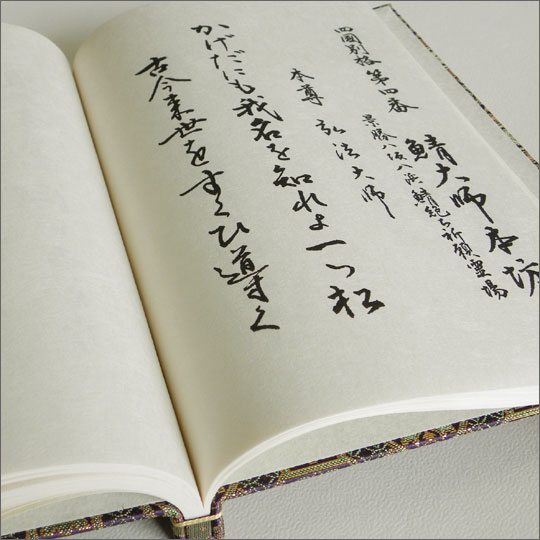 四國別格第四番
鯖大師本坊
景勝八坂八浜鯖絶ち祈願霊場
本尊 弘法大師
かげだにも我名を知れよ一つ松
古今来世をすくひ導く